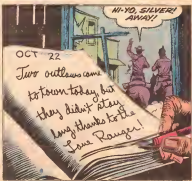 HI-YO, SILVER!
AWAY!
OCT 22
Two outlaws came
to town today, but
they didn't stay
long, thanks to the
Lone Ranger